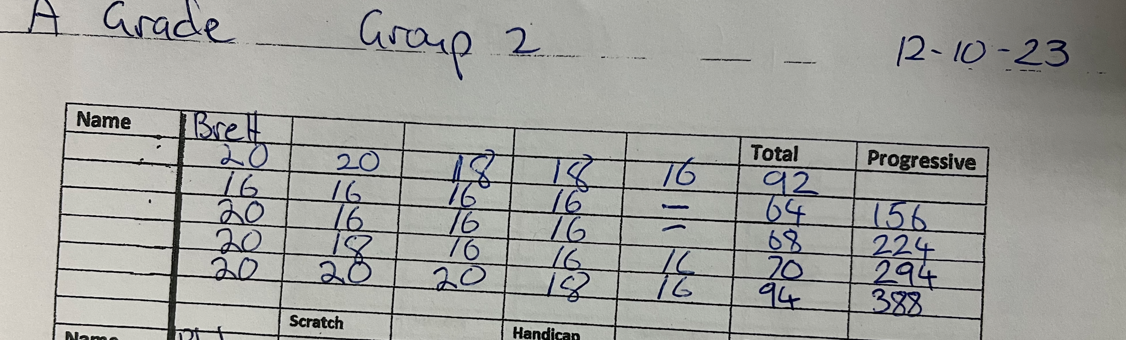 A Grade Group 2 12-10-23
Name Brett Total Progressive
20 20 18 18 16 92
16 16 16 16 – 64 156
20 16 16 16 – 68 224
20 18 16 16 16 70 294
20 20 20 18 16 94 388
Scratch Handicap
Name